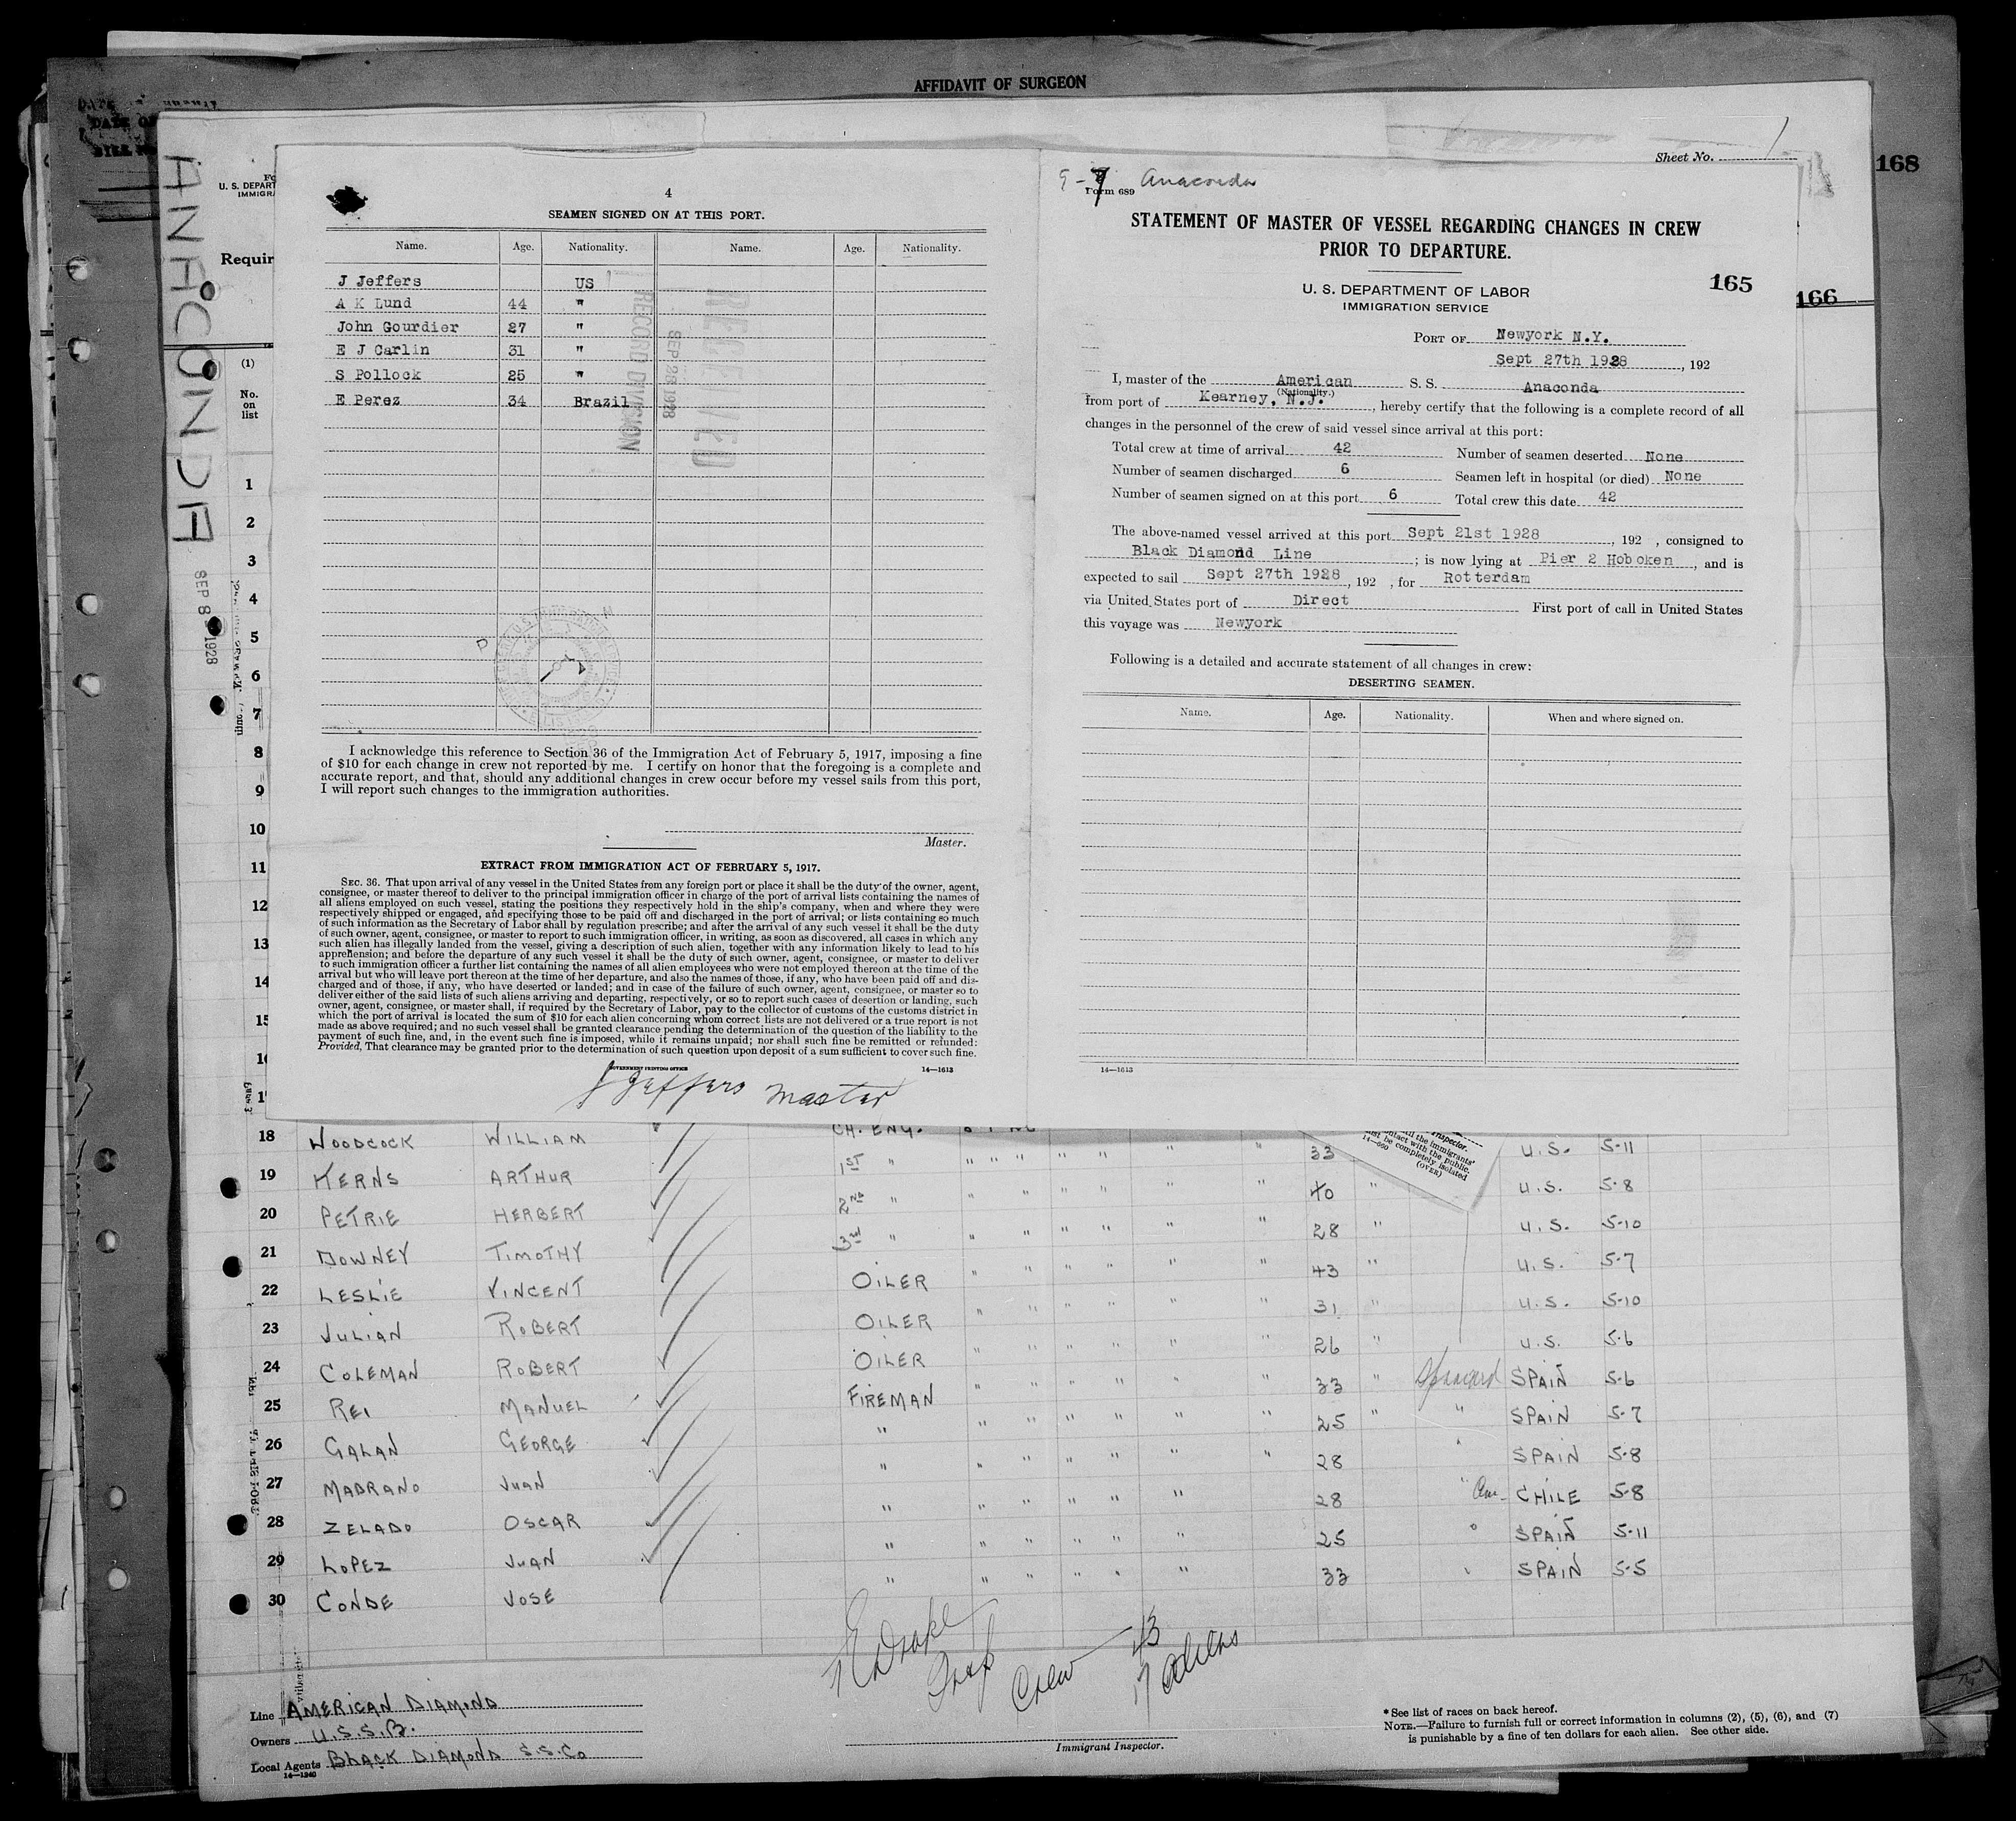 AFFIDAVIT OF SURGEON
Sheet No. 1
168
ANACONDA
SEP 8 1928
U. S. DEPART
IMMIGRA
Requir
166
(1)
No.
on
list
1
2
3
4
5
6
7
8
9
10
11
12
13
14
15
4
SEAMEN SIGNED ON AT THIS PORT.
Name. Age. Nationality. Name. Age. Nationality.
J Jeffers US
A K Lund 44 "
John Gourdier 27 "
E J Carlin 31 "
S Pollock 25 "
E Perez 34 Brazil
RECORD DIVISION
SEP 28 1928
RECEIVED
I acknowledge this reference to Section 36 of the Immigration Act of February 5, 1917, imposing a fine
of $10 for each change in crew not reported by me. I certify on honor that the foregoing is a complete and
accurate report, and that, should any additional changes in crew occur before my vessel sails from this port,
I will report such changes to the immigration authorities.
Master.
EXTRACT FROM IMMIGRATION ACT OF FEBRUARY 5, 1917.
SEC. 36. That upon arrival of any vessel in the United States from any foreign port or place it shall be the duty of the owner, agent,
consignee, or master thereof to deliver to the principal immigration officer in charge of the port of arrival lists containing the names of
all aliens employed on such vessel, stating the positions they respectively hold in the ship's company, when and where they were
respectively shipped or engaged, and specifying those to be paid off and discharged in the port of arrival; or lists containing so much
of such information as the Secretary of Labor shall by regulation prescribe; and after the arrival of any such vessel it shall be the duty
of such owner, agent, consignee, or master to report to such immigration officer, in writing, as soon as discovered, all cases in which any
such alien has illegally landed from the vessel, giving a description of such alien, together with any information likely to lead to his
apprehension; and before the departure of any such vessel it shall be the duty of such owner, agent, consignee, or master to deliver
to such immigration officer a further list containing the names of all alien employees who were not employed thereon at the time of the
arrival but who will leave port thereon at the time of her departure, and also the names of those, if any, who have been paid off and dis-
charged and of those, if any, who have deserted or landed; and in case of the failure of such owner, agent, consignee, or master so to
deliver either of the said lists of such aliens arriving and departing, respectively, or so to report such cases of desertion or landing, such
owner, agent, consignee, or master shall, if required by the Secretary of Labor, pay to the collector of customs of the customs district in
which the port of arrival is located the sum of $10 for each alien concerning whom correct lists are not delivered or a true report is not
made as above required; and no such vessel shall be granted clearance pending the determination of the question of the liability to the
payment of such fine, and, in the event such fine is imposed, while it remains unpaid; nor shall such fine be remitted or refunded:
Provided, That clearance may be granted prior to the determination of such question upon deposit of a sum sufficient to cover such fine.
GOVERNMENT PRINTING OFFICE 14—1613
J Jeffers Master
9-7 Anaconda
Form 689
STATEMENT OF MASTER OF VESSEL REGARDING CHANGES IN CREW
PRIOR TO DEPARTURE.
165
U. S. DEPARTMENT OF LABOR
IMMIGRATION SERVICE
PORT OF Newyork N.Y.
Sept 27th 1928, 192
I, master of the American S. S. Anaconda
(Nationality.)
from port of Kearney, N.J., hereby certify that the following is a complete record of all
changes in the personnel of the crew of said vessel since arrival at this port:
Total crew at time of arrival 42 Number of seamen deserted None
Number of seamen discharged 6 Seamen left in hospital (or died) None
Number of seamen signed on at this port 6 Total crew this date 42
The above-named vessel arrived at this port Sept 21st 1928, 192 , consigned to
Black Diamond Line ; is now lying at Pier 2 Hoboken, and is
expected to sail Sept 27th 1928, 192 , for Rotterdam
via United States port of Direct First port of call in United States
this voyage was Newyork
Following is a detailed and accurate statement of all changes in crew:
DESERTING SEAMEN.
Name. Age. Nationality. When and where signed on.
14—1613
Inspector.
the immigrants'
contact with the public.
must be completely isolated
(OVER)
18 WOODCOCK WILLIAM CH. ENG. 33 U.S. 5-11
19 KERNS ARTHUR 1ST " " " " " " " " 40 " U.S. 5-8
20 PETRIE HERBERT 2ND " " " " " " " 28 " U.S. 5-10
21 DOWNEY TIMOTHY 3rd " " " " " " " 43 " U.S. 5-7
22 LESLIE VINCENT OILER " " " " " " 31 " U.S. 5-10
23 JULIAN ROBERT OILER " " " " " " 26 " U.S. 5-6
24 COLEMAN ROBERT OILER " " " " " " 33 " Spaniard SPAIN 5-6
25 REI MANUEL FIREMAN " " " " " " 25 " " SPAIN 5-7
26 GALAN GEORGE " " " " " " " 28 " SPAIN 5-8
27 MADRANO JUAN " " " " " " 28 " Am- CHILE 5-8
28 ZELADO OSCAR " " " " " " 25 " SPAIN 5-11
29 LOPEZ JUAN " " " " " " 33 " SPAIN 5-5
30 CONDE JOSE "
Crew 43
17 Aliens
Line AMERICAN DIAMOND
Owners U.S.S.B.
Local Agents BLACK DIAMOND S.S.Co
14—1240
Immigrant Inspector.
* See list of races on back hereof.
NOTE.—Failure to furnish full or correct information in columns (2), (5), (6), and (7)
is punishable by a fine of ten dollars for each alien. See other side.